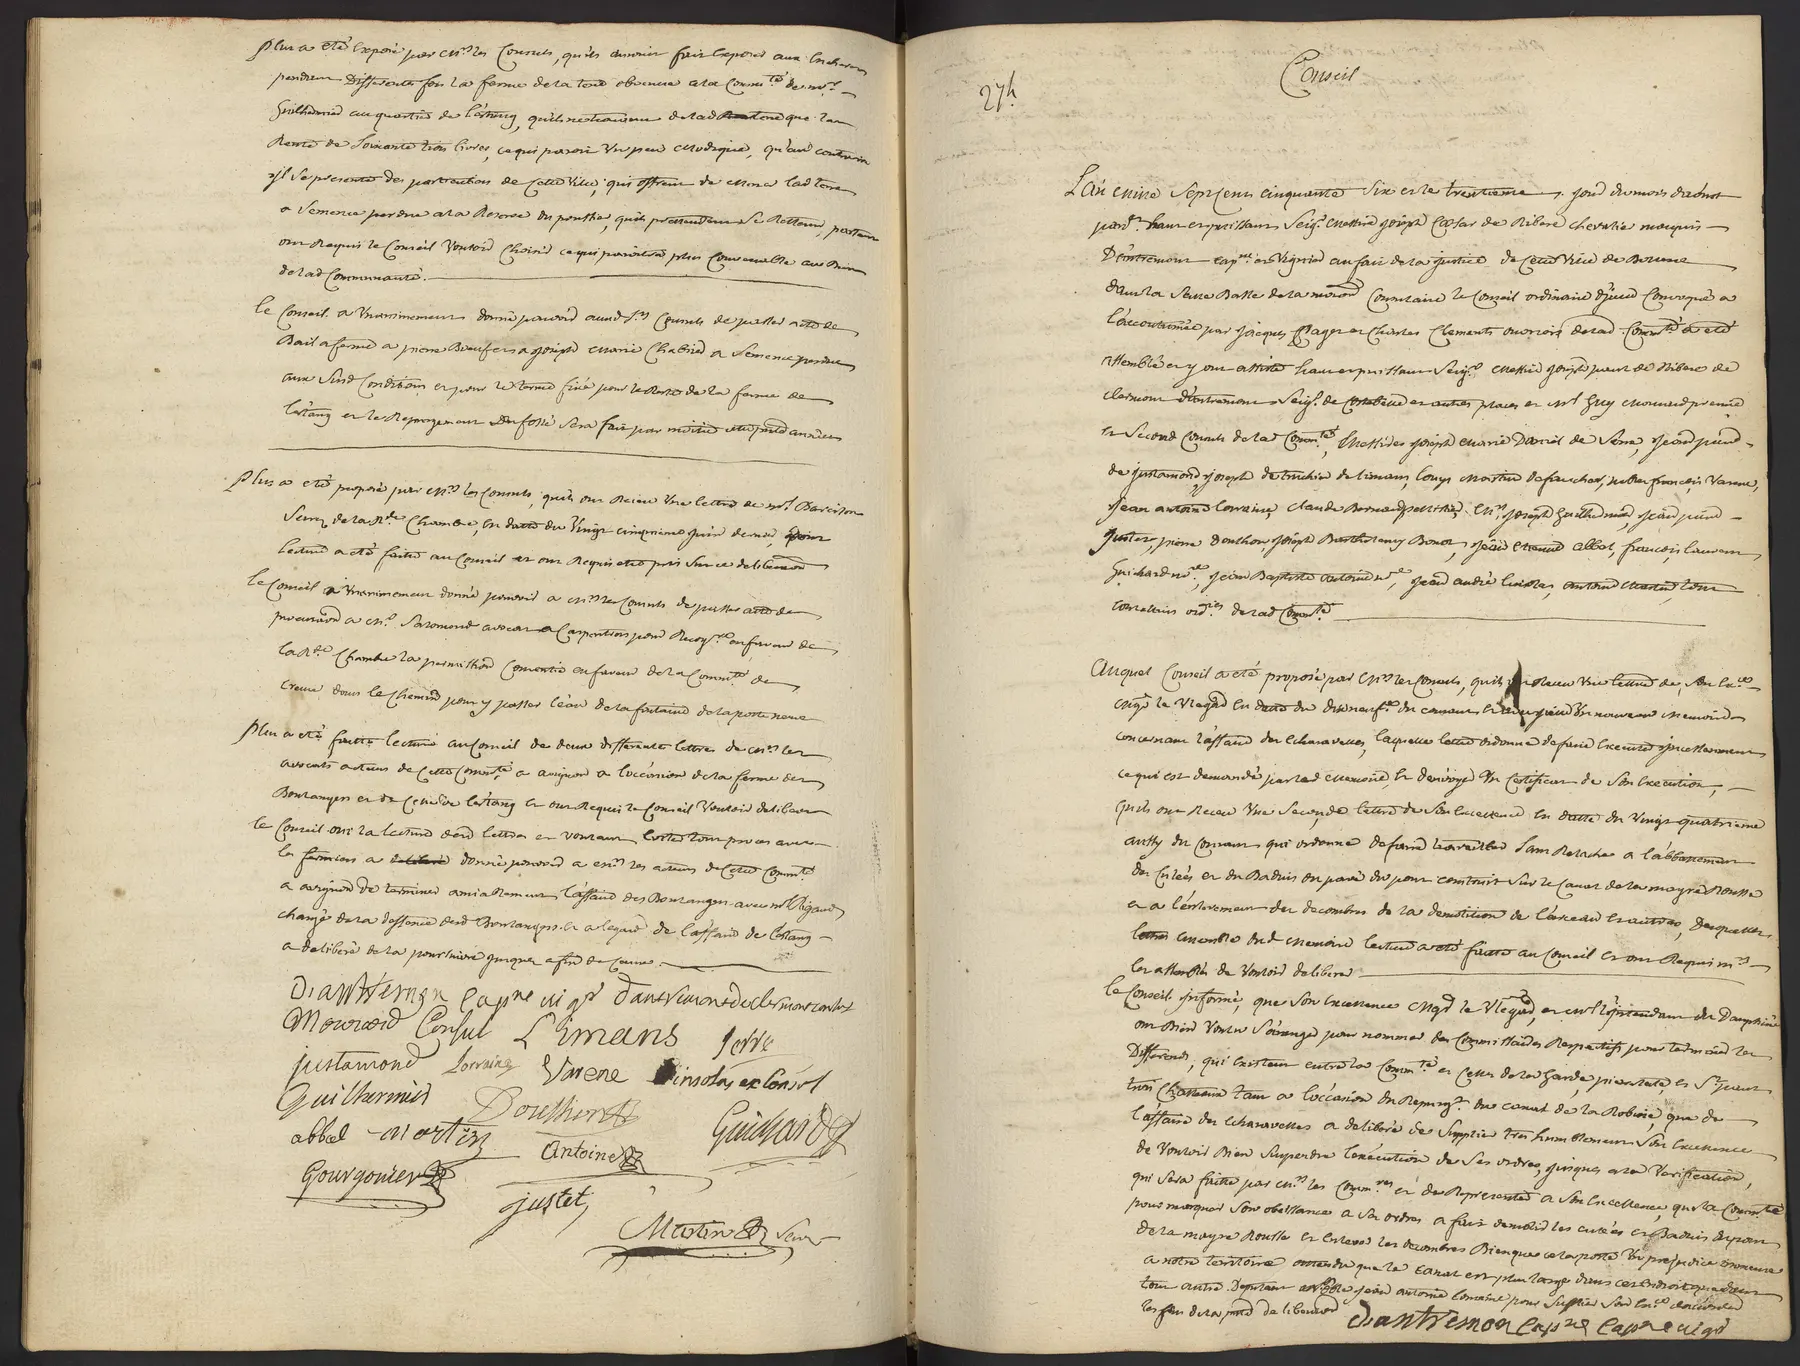 Plus a eté Exposé par Mrs les Consuls, qu'ils auroint fait Exposer aux Encheres
pendant Differentes fois la ferme de la terre obvenue a la Commté de Mr
Guilhermier au quartier de l'estang, qu'ils ne trouvent de lad terre que la
Rente de soixante trois livres, ce qui paroit un peu modique, qu'au contraire
il se presente des particuliers de Cette Ville, qui offrent de mettre lad terre
a semence perdue a la Reserve du ... qu'ils pretendent se Retenir, partant
ont Requis le Conseil Vouloir Choisir ce qui paroitra plus Convenable au Bien
de lad Communauté.
le Conseil a Unanimement donné pouvoir auxd srs Consuls de passer acte de
Bail a ferme a pierre Bœuf et a Joseph Marie Chabier a Semence perdue
aux susd Conditions et pour le terme fixé pour le Reste de la ferme de
l'estang et le Repurgement du fossé sera fait par moitié
Plus a eté proposé par Mrs les Consuls, qu'ils ont Receu Une lettre de Mr Barcilon
Secre de la Rde Chambre, en datte du Vingt cinquieme Juin dernier, dont
lecture a eté faitte au Conseil et ont Requis etre pris sur ce deliberation
le Conseil a Unanimement donné pouvoir a Mrs les Consuls de passer acte de
procuration a Mr Salomond avocat a Carpentras pour Recognre en faveur de
la Rde Chambre la permission Consentie en faveur de la Commté de
Creuser dans le Chemin pour y passer l'eau de la fontaine de la porte neuve
Plus a eté faitte lecture au Conseil de deux differentes lettres de Mrs les
avocats acteurs de Cette Commté a avignon a l'occasion de la ferme des
Boulangers et de Celle de l'estang et ont Requis le Conseil Vouloir deliberer
le Conseil oui la lecture desd lettres et voulant eviter tout proces avec
les fermiers a donné pouvoir a Mrs les acteurs de Cette Commté
a avignon de terminer amiablement l'affaire des Boulangers avec Mr Rigaud
chargé de la deffence desd Boulangers et a legard de l'affaire de l'estang
a deliberé de la poursuivre jusques a fin de Cause.
D'antremon Capne vigr d'antremont de clermont consul
Mouvard Consul L'Emans serre
justamond Lorraine Varene insolas ex Consul
Guilhermier Douthion Guichard
abbal Martin Antoine
Gourgonier
justet
Martin Secre
27h
Conseil
L'an mille Septcens cinquante Six et le trentieme jour du mois d'aoust
pardt haut et puissant Seigr Messire Joseph Cæsar de Ribere chevalier marquis
D'antremont capne et Viguier au fait de la Justice de Cette Ville de Bollene
dans la Salle Basse de la maison Consulaire le Conseil ordinaire d'jcelle Convoqué a
l'accoutumée par Jacques Pager et Charles Clements Nuriols de lad Commté a eté
assemblé et y ont assisté haut et puissant Seigr Messire Joseph paul de Ribere de
Clermont d'antremont Seigr de Costebelle et autres places et Mr Guy Mouvard premier
et Second Consuls de la d Commté, Messires Joseph Marie Daniel de Serre, Jean pierre
de Justamond, Joseph de trichier de limans, louys Martin de faucher, nobles françois Varene,
Jean antoine Lorraine, Claude Bernard pellissier, Mrs Joseph Guilhermier, Jean pierre
Justet, pierre Douthion, Joseph Barthelemy Bonot, Jean Etienne abbal, françois laurens
Guichard nre, Jean Baptiste antoine nre, Jean andré Insolas, antoine Martin, tous
conseillers ordres de lad Commté
Auquel Conseil a eté proposé par Mrs les Consuls, qu'ils ont Receu Une lettre de, Son Exce
Mgr le Vlegat en datte du dix neufe du courant et un nouveau Memoire
concernant l'affaire des Echaravelles, laquelle lettre ordonne de faire Executer incessamment
ce qui est demandé par led Memoire, et d'envoyer Un certificat de Son Execution,
qu'ils ont Receu Une Seconde lettre de Son Excellence en datte du Vingt quatrieme
du Courant qui ordonne de faire travailler Sans Relache a l'abbaissement
des Culées et du Radier du pavé du pont construit sur le Canal de la mayre Rousse
et a l'enlevement des decombres de la demolition de l'arceau et autres, desquelles
lettres ensemble dud Memoire lecture a eté faitte au Conseil et ont Requis Mrs
les assemblés de Vouloir deliberer
le Conseil Informé, que Son Excellence Mgr le Vlegat, et Mr l'jntendant du Dauphiné
ont Bien Voulu S'aranger pour nommer des Commissaires Respectifs pour terminer les
Differends, qui Existent entre la Commté et Celles de la Garde, pierrelate, et St paul
trois Chateaux tant a l'occasion du Repurgt du canal de la Robine, que de
l'affaire des Echaravelles a deliberé de Supplier tres humblement Son Excellence
de Vouloir Bien Suspendre l'execution de Ses ordres, jusques a la Verification,
qui sera faitte par Mrs les Commres et de Representer a Son Excellence, que la Commté
pour marquer Son obeissance a Ses ordres a fait demolir les culées et Radier du pont
de la mayre Rousse et Enlever les decombres Bien que cela porte Un prejudice
a notre territoire attendu que le canal est plus large dans cet Endroit que dans
tout autre. Deputant noble Jean antoine lorraine pour Supplier Son Exce d'accorder
les fins de la pnte deliberation D'antremon Capne Capne vigr